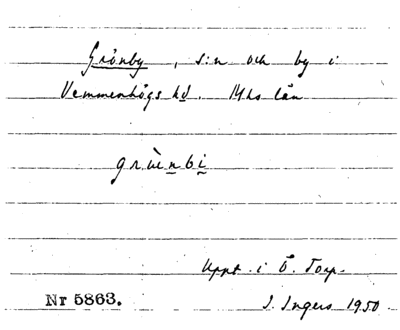 Grönby, s:n och by i
Vemmenhögs hd. Mhs län
grùènbi
Uppt. i Ö. Torp.
Nr 5863.
I. Ingers 1950.